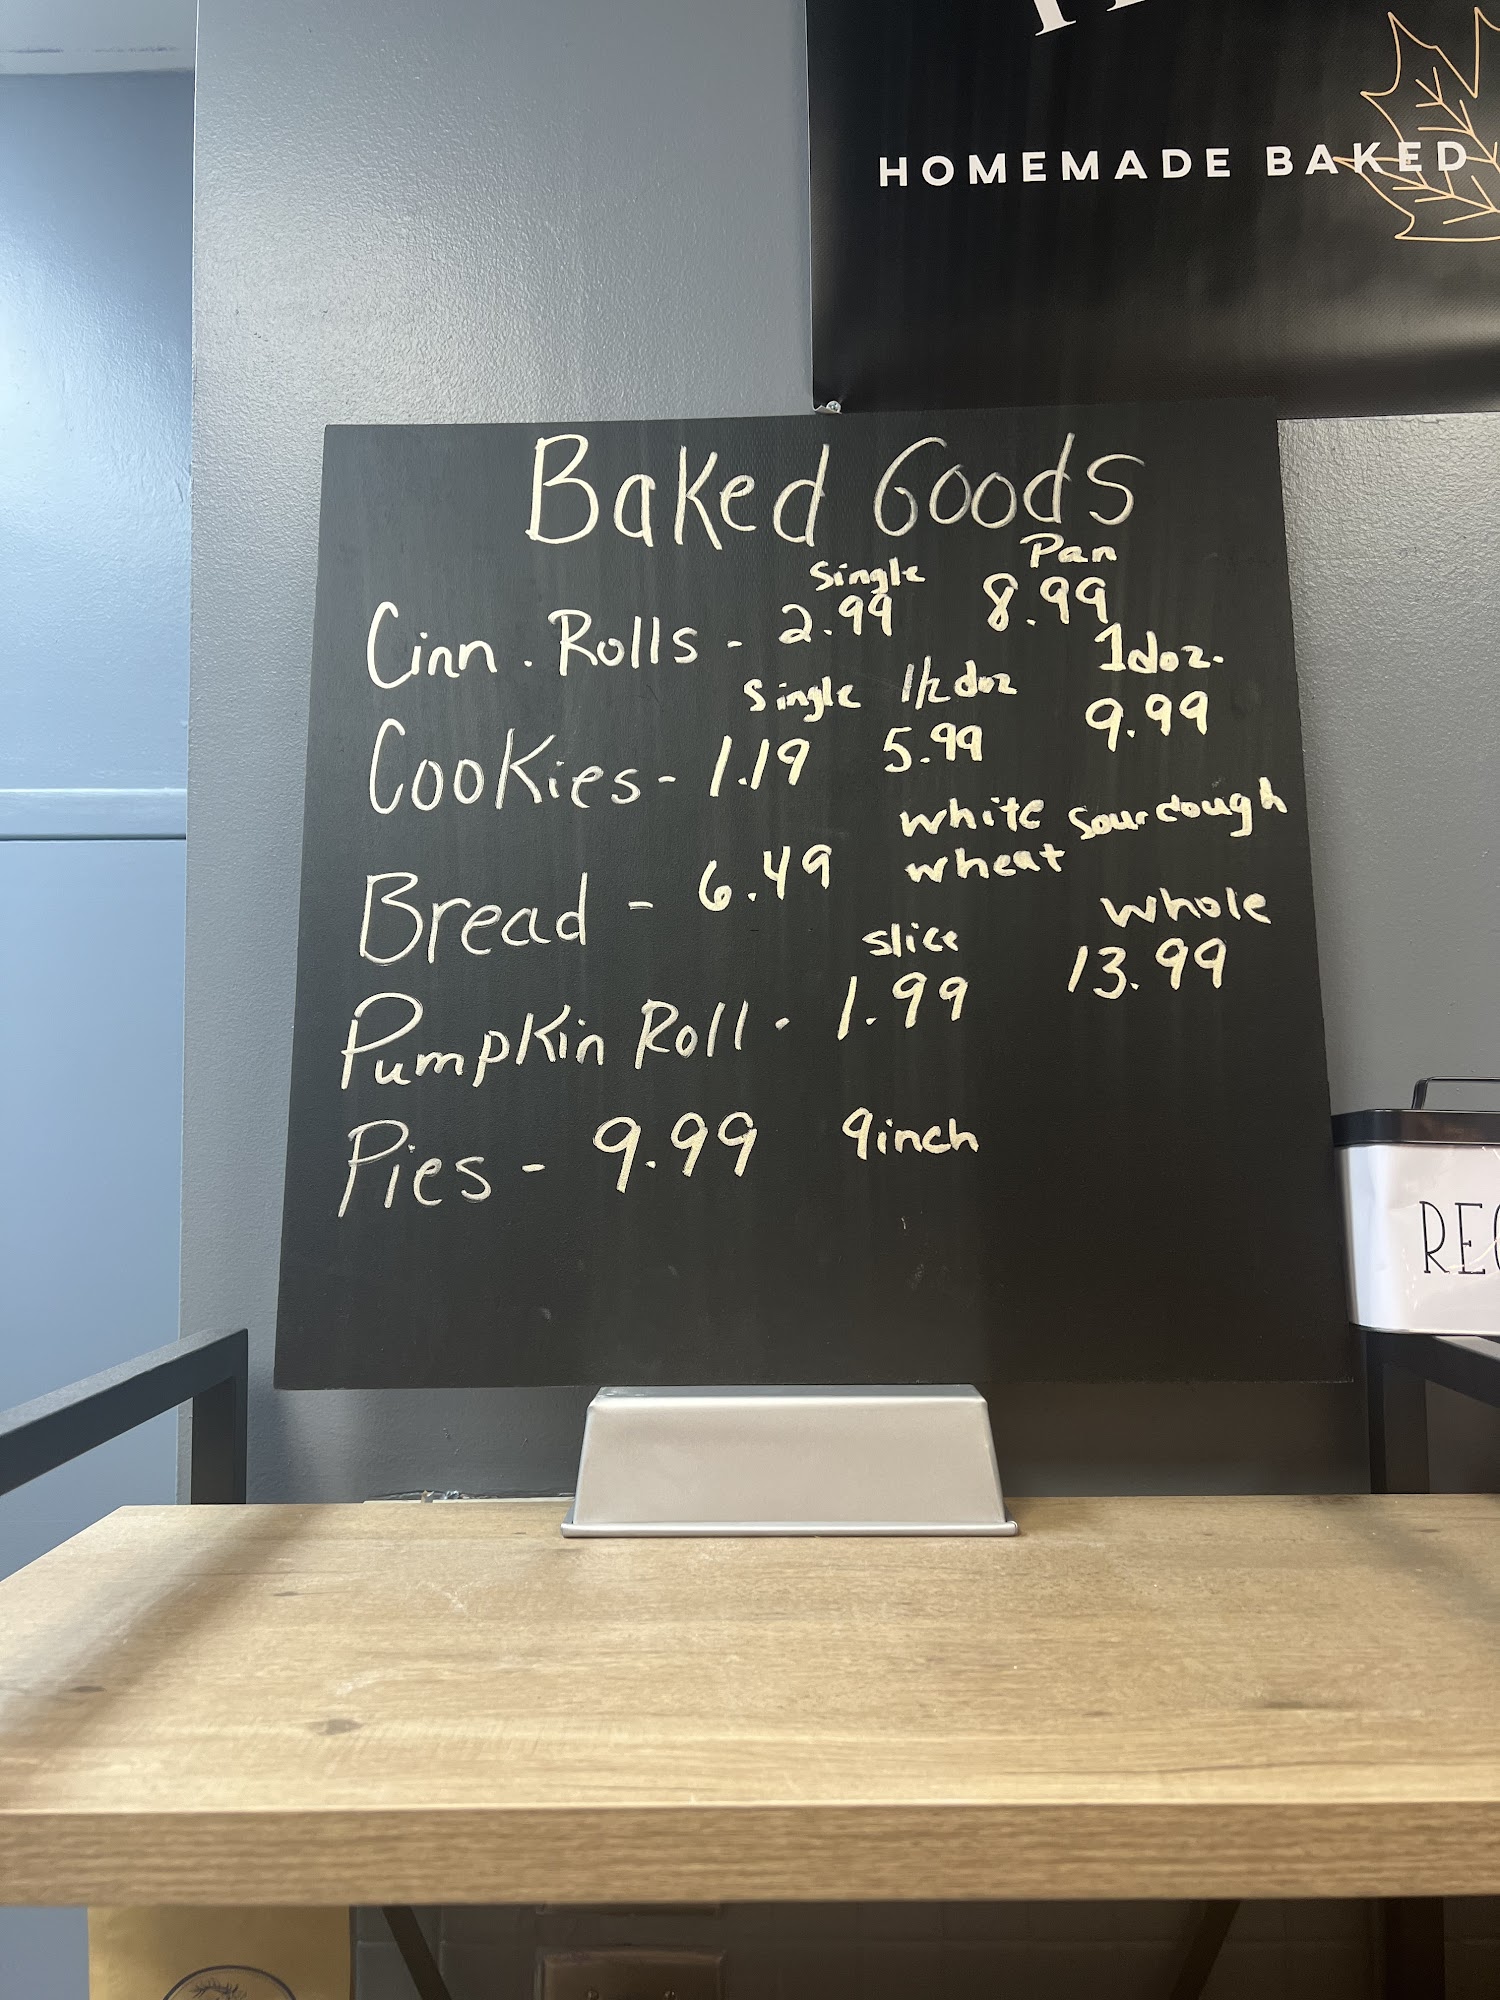 HOMEMADE BAKED
Baked Goods
Single Pan
Cinn. Rolls - 2.99 8.99
Single 1/2 doz 1 doz.
Cookies - 1.19 5.99 9.99
white sourdough
wheat
Bread - 6.49
slice whole
Pumpkin Roll - 1.99 13.99
Pies - 9.99 9inch